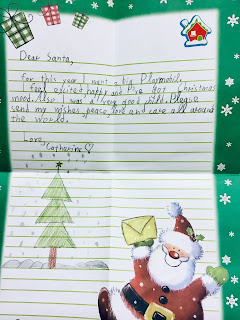 Dear Santa,
for this year I want a big Playmobil.
I feel excited, happy and I've got Christmas
mood. Also I was a very good child. Please
send my wishes, peace, love and care all around
the world.
Love,
Catharine